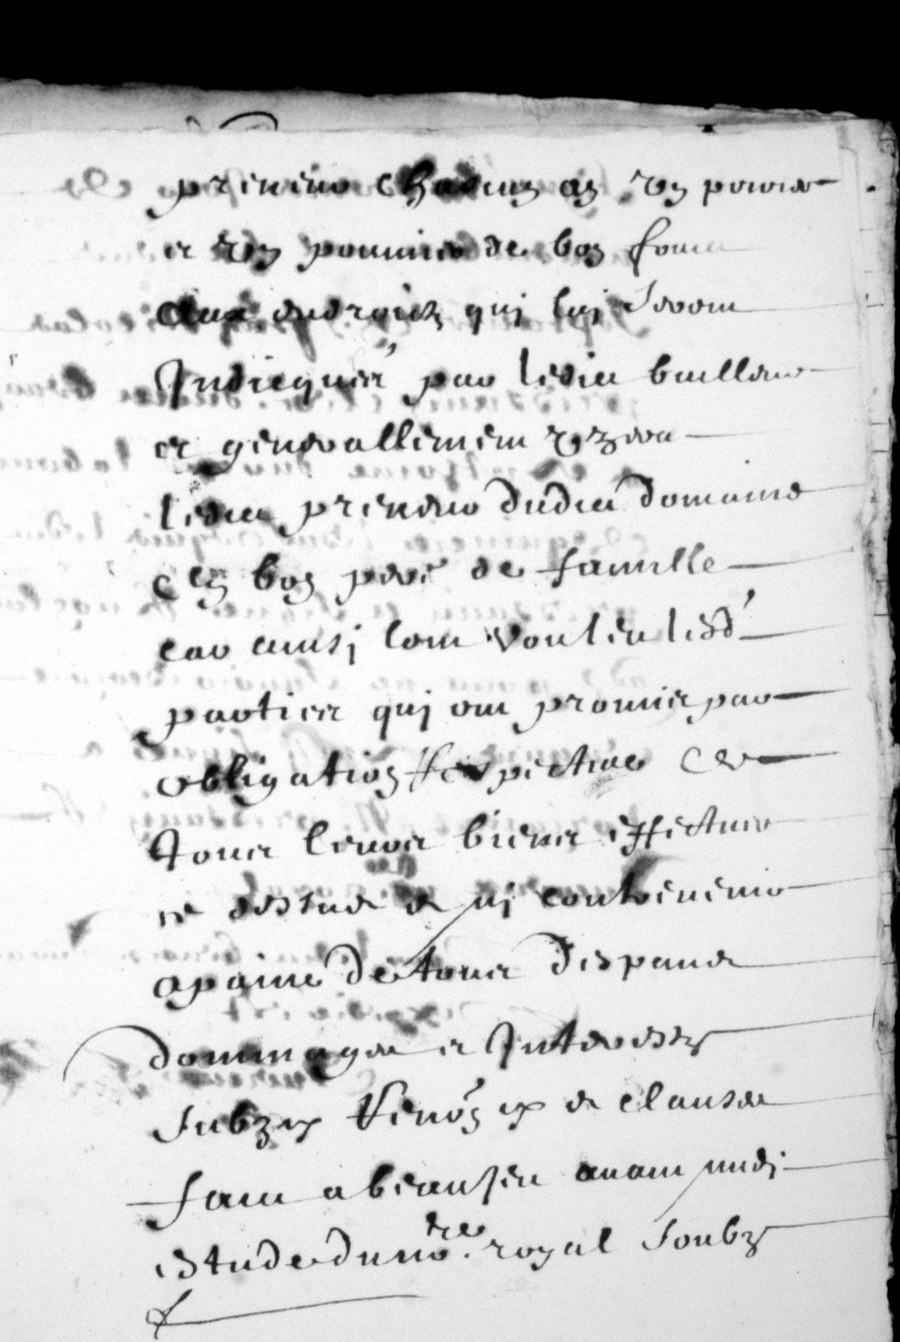 preneur chascun an ung poirier
et ung pommier de bon
aux endroictz quj luj seront
Indicquer par ledict bailleur
et generallement user
ledict preneur dudict domaine
en bon pere de famille
car ainsj l'ont voulleu lesd'
parties quj ont promis par
obligation Respective
tout tenir bien effectuer
ce dessus et nj contrevenir
a paine de tous despans
dommages et Interestz
subz et Renon et clauses
faict a beaujeu avant midi
estude du no.re royal soubz